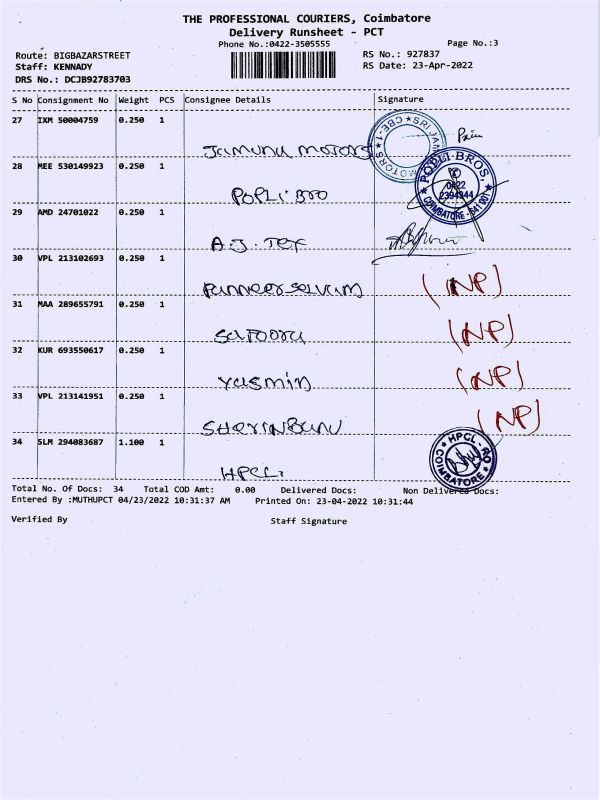 THE PROFESSIONAL COURIERS, Coimbatore
Delivery Runsheet - PCT
Phone No.:0422-3505555
Page No.:3
Route: BIGBAZARSTREET
RS No.: 927837
Staff: KENNADY
RS Date: 23-Apr-2022
DRS No.: DCJB92783703
S No Consignment No Weight PCS Consignee Details Signature
27 IXM 50004759 0.250 1
Jamuna motors
CBE-1 * SRI JAM MOTORS *
28 MEE 530149923 0.250 1
POPLi Bro
POPLI BROS,
0422
2394344
COIMBATORE - 641 001
29 AMD 24701022 0.250 1
A.J. Tex
30 VPL 213102693 0.250 1
Panneerselvam (NP)
31 MAA 289655791 0.250 1
(NP)
32 KUR 693550617 0.250 1
Yasmin (NP)
33 VPL 213141951 0.250 1
SHERINBANU (NP)
34 SLM 294083687 1.100 1
HPCL
HPCL - RO
COIMBATORE
Total No. Of Docs: 34 Total COD Amt: 0.00 Delivered Docs: Non Delivered Docs:
Entered By :MUTHUPCT 04/23/2022 10:31:37 AM Printed On: 23-04-2022 10:31:44
Verified By Staff Signature